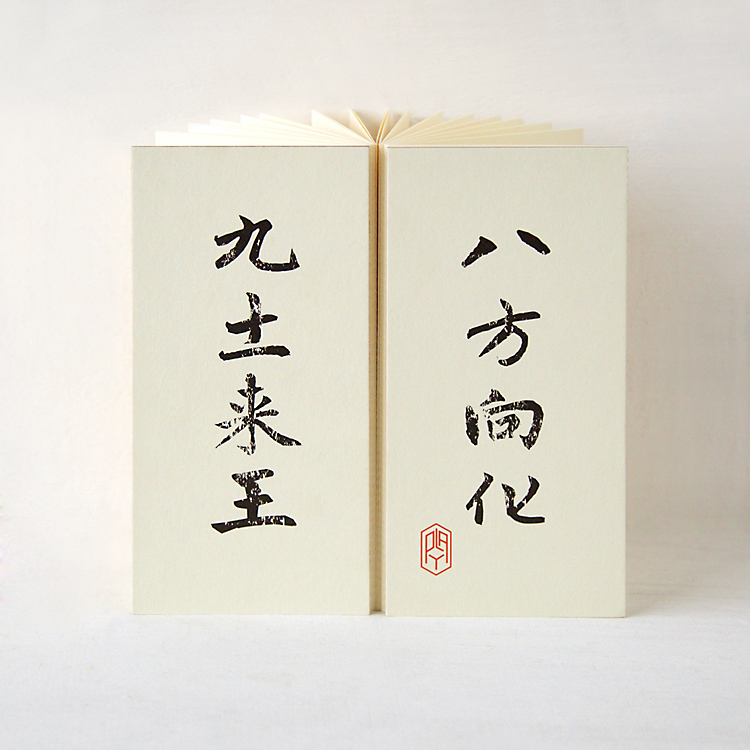 八方向化
九土来王
PLAY